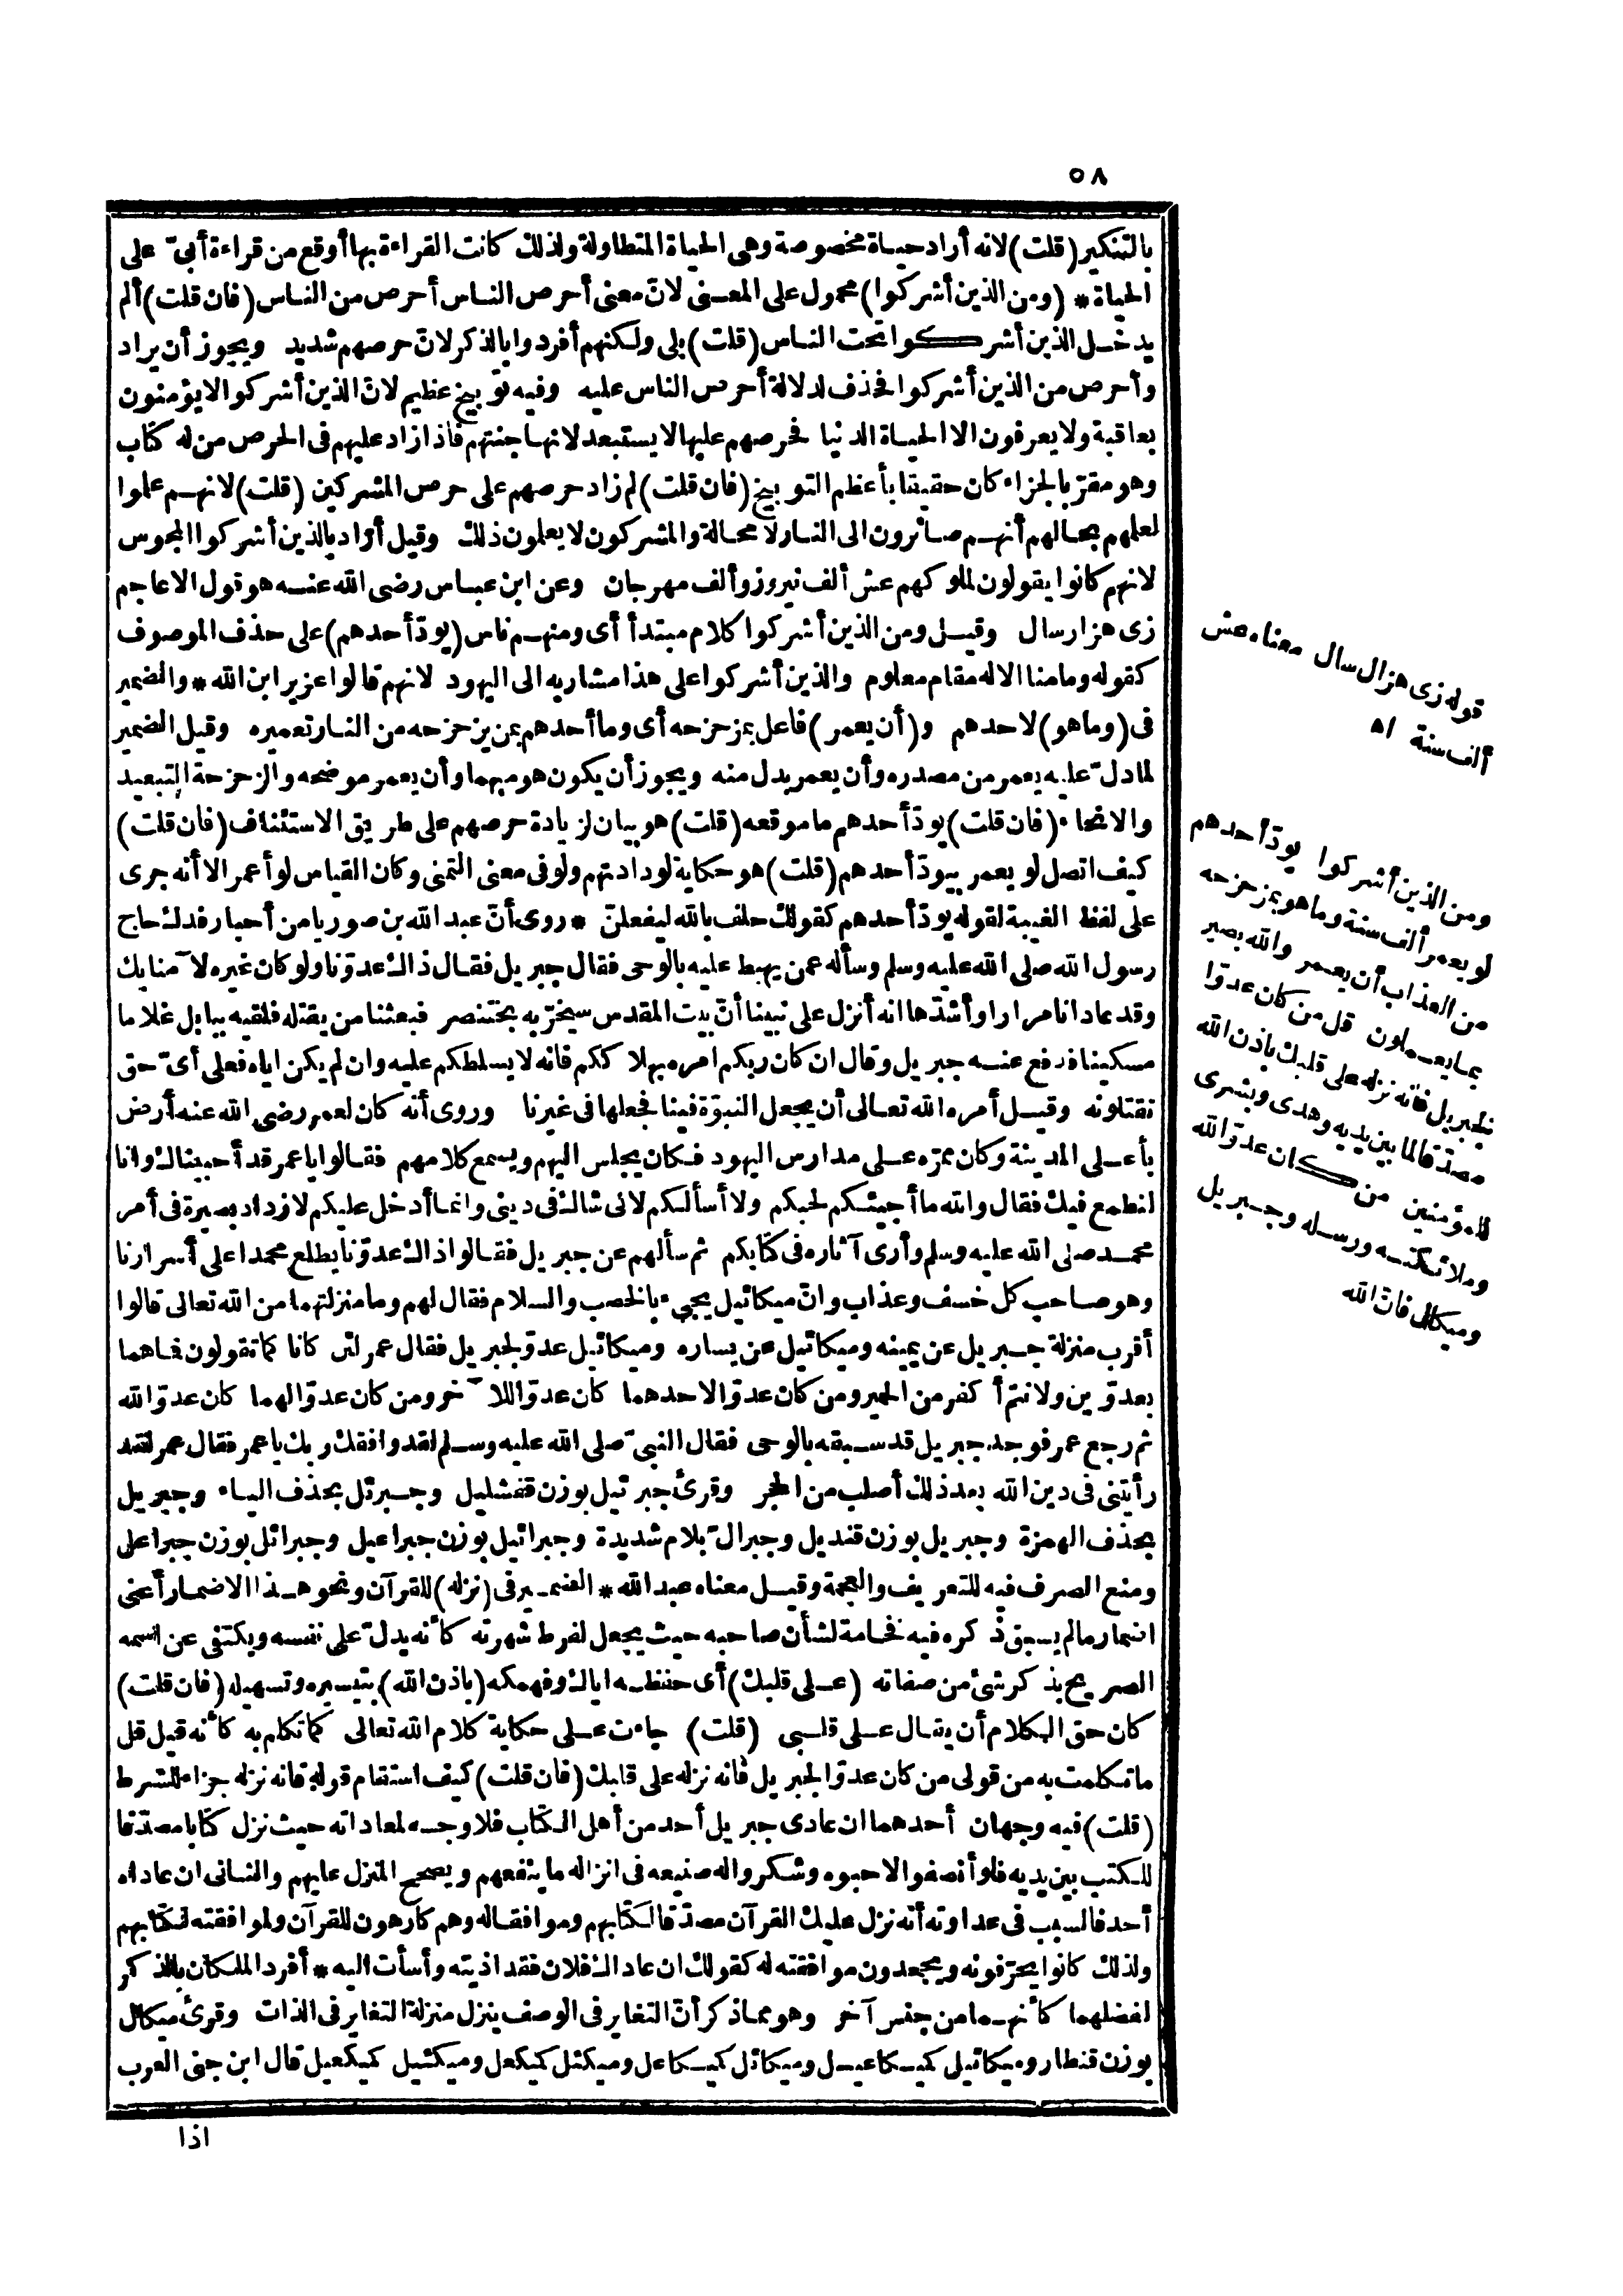 ٥٨
بالتنكير (قلت) لانه أراد حياة مخصوصة وهى الحياة المتطاولة ولذلك كانت القراءة بها أوقع من قراءة أبىّ على
الحياة * (ومن الذين أشركوا) محمول على المعنى لانّ معنى أحرص الناس أحرص من الناس (فان قلت) ألم
يدخل الذين أشركوا تحت الناس (قلت) بلى ولكنهم أفردوا بالذكر لانّ حرصهم شديد ويجوز أن يراد
وأحرص من الذين أشركوا فحذف لدلالة أحرص الناس عليه وفيه توبيخ عظيم لانّ الذين أشركوا لا يؤمنون
بعاقبة ولا يعرفون الا الحياة الدنيا فحرصهم عليها لا يستبعد لانها جنتهم فاذا زاد عليهم فى الحرص من له كتاب
وهو مقرّ بالجزاء كان حقيقا بأعظم التوبيخ (فان قلت) لم زاد حرصهم على حرص المشركين (قلت) لانهم علموا
لعلمهم بحالهم أنهم صائرون الى النار لا محالة والمشركون لا يعلمون ذلك وقيل أراد بالذين أشركوا المجوس
لانهم كانوا يقولون لملوكهم عش ألف نيروز وألف مهرجان وعن ابن عباس رضى الله عنه هو قول الاعاجم
زى هزار سال وقيل ومن الذين أشركوا كلام مبتدأ أى ومنهم ناس (يودّ أحدهم) على حذف الموصوف
كقوله وما منا الا له مقام معلوم والذين أشركوا على هذا مشار به الى اليهود لانهم قالوا عزير ابن الله * والضمير
فى (وما هو) لاحدهم و(أن يعمر) فاعل بمزحزحه أى وما أحدهم بمن يزحزحه من النار تعميره وقيل الضمير
لما دلّ عليه يعمر من مصدره وأن يعمر بدل منه ويجوز أن يكون هو مبهما وأن يعمر موضحه والزحزحة التبعيد
والانحاء (فان قلت) يودّ أحدهم ما موقعه (قلت) هو بيان لزيادة حرصهم على طريق الاستئناف (فان قلت)
كيف اتصل لو يعمر بيودّ أحدهم (قلت) هو حكاية لودادتهم ولو فى معنى التمنى وكان القياس لو أعمر الا أنه جرى
على لفظ الغيبة لقوله يودّ أحدهم كقولك حلف بالله ليفعلنّ * روى أنّ عبد الله بن صوريا من أحبار فدك حاج
رسول الله صلى الله عليه وسلم وسأله عمن يهبط عليه بالوحى فقال جبريل فقال ذاك عدوّنا ولو كان غيره لآمنا بك
وقد عادانا مرارا وأشدّها انه أنزل على نبينا أنّ بيت المقدس سيخرّبه بختنصر فبعثنا من يقتله فلقيه ببابل غلاما
مسكينا فدفع عنه جبريل وقال ان كان ربكم أمره بهلاككم فانه لا يسلطكم عليه وان لم يكن اياه فعلى أىّ حق
تقتلونه وقيل أمره الله تعالى أن يجعل النبوّة فينا فجعلها فى غيرنا وروى أنه كان لعمر رضى الله عنه أرض
بأعلى المدينة وكان ممرّه على مدارس اليهود فكان يجلس اليهم ويسمع كلامهم فقالوا يا عمر قد أحببناك وانا
لنطمع فيك فقال والله ما أجيئكم لحبكم ولا أسألكم لانى شاك فى دينى وانما أدخل عليكم لازداد بصيرة فى أمر
محمد صلى الله عليه وسلم وأرى آثاره فى كتابكم ثم سألهم عن جبريل فقالوا ذاك عدوّنا يطلع محمدا على أسرارنا
وهو صاحب كل خسف وعذاب وانّ ميكائيل يجىء بالخصب والسلام فقال لهم وما منزلتهما من الله تعالى قالوا
أقرب منزلة جبريل عن يمينه وميكائيل عن يساره وميكائيل عدوّ لجبريل فقال عمر لئن كانا كما تقولون فما هما
بعدوّين ولانتم أكفر من الحمير ومن كان عدوّا لاحدهما كان عدوّا للآخر ومن كان عدوّا لهما كان عدوّا لله
ثم رجع عمر فوجد جبريل قد سبقه بالوحى فقال النبىّ صلى الله عليه وسلم لقد وافقك ربك يا عمر فقال عمر لقد
رأيتنى فى دين الله بعد ذلك أصلب من الحجر وقرئ جبرئيل بوزن قفشليل وجبرئل بحذف الياء وجبريل
بحذف الهمزة وجبريل بوزن قنديل وجبرالّ بلام شديدة وجبرائيل بوزن جبراعيل وجبرائل بوزن جبراعل
ومنع الصرف فيه للتعريف والعجمة وقيل معناه عبد الله * الضمير فى (نزله) للقرآن ونحو هذا الاضمار أعنى
اضمار ما لم يسبق ذكره فيه فخامة لشأن صاحبه حيث يجعل لفرط شهرته كأنه يدلّ على نفسه ويكتفى عن اسمه
الصريح بذكر شئ من صفاته (على قلبك) أى حفظه اياك وفهمكه (باذن الله) بتيسيره وتسهيله (فان قلت)
كان حق الكلام أن يقال على قلبى (قلت) جاءت على حكاية كلام الله تعالى كما تكلم به كأنه قيل قل
ما تكلمت به من قولى من كان عدوّا لجبريل فانه نزله على قلبك (فان قلت) كيف استقام قوله فانه نزله جزاء للشرط
(قلت) فيه وجهان أحدهما ان عادى جبريل أحد من أهل الكتاب فلا وجه لمعاداته حيث نزل كتابا مصدّقا
للكتب بين يديه فلو أنصفوا لاحبوه وشكروا له صنيعه فى انزاله ما ينفعهم ويصحح المنزل عليهم والثانى ان عاداه
أحد فالسبب فى عداوته أنه نزل عليك القرآن مصدّقا لكتابهم وموافقا له وهم كارهون للقرآن ولموافقته لكتابهم
ولذلك كانوا يحرّفونه ويجحدون موافقته له كقولك ان عاداك فلان فقد اذيته وأسأت اليه * أفرد الملكان بالذكر
لفضلهما كأنهما من جنس آخر وهو مما ذكر أنّ التغاير فى الوصف ينزل منزلة التغاير فى الذات وقرئ ميكال
بوزن قنطار وميكائيل كميكاعيل وميكائل كميكاعل وميكئل كميكعل وميكئيل كميكعيل قال ابن جنى العرب
اذا
قوله زى هزال سال معناه عش
ألف سنة اه
ومن الذين أشركوا يودّ أحدهم
لو يعمر ألف سنة وما هو بمزحزحه
من العذاب أن يعمر والله بصير
بما يعملون قل من كان عدوّا
لجبريل فانّه نزله على قلبك باذن الله
مصدّقا لما بين يديه وهدى وبشرى
للمؤمنين من كان عدوّا لله
وملائكته ورسله وجبريل
وميكال فانّ الله